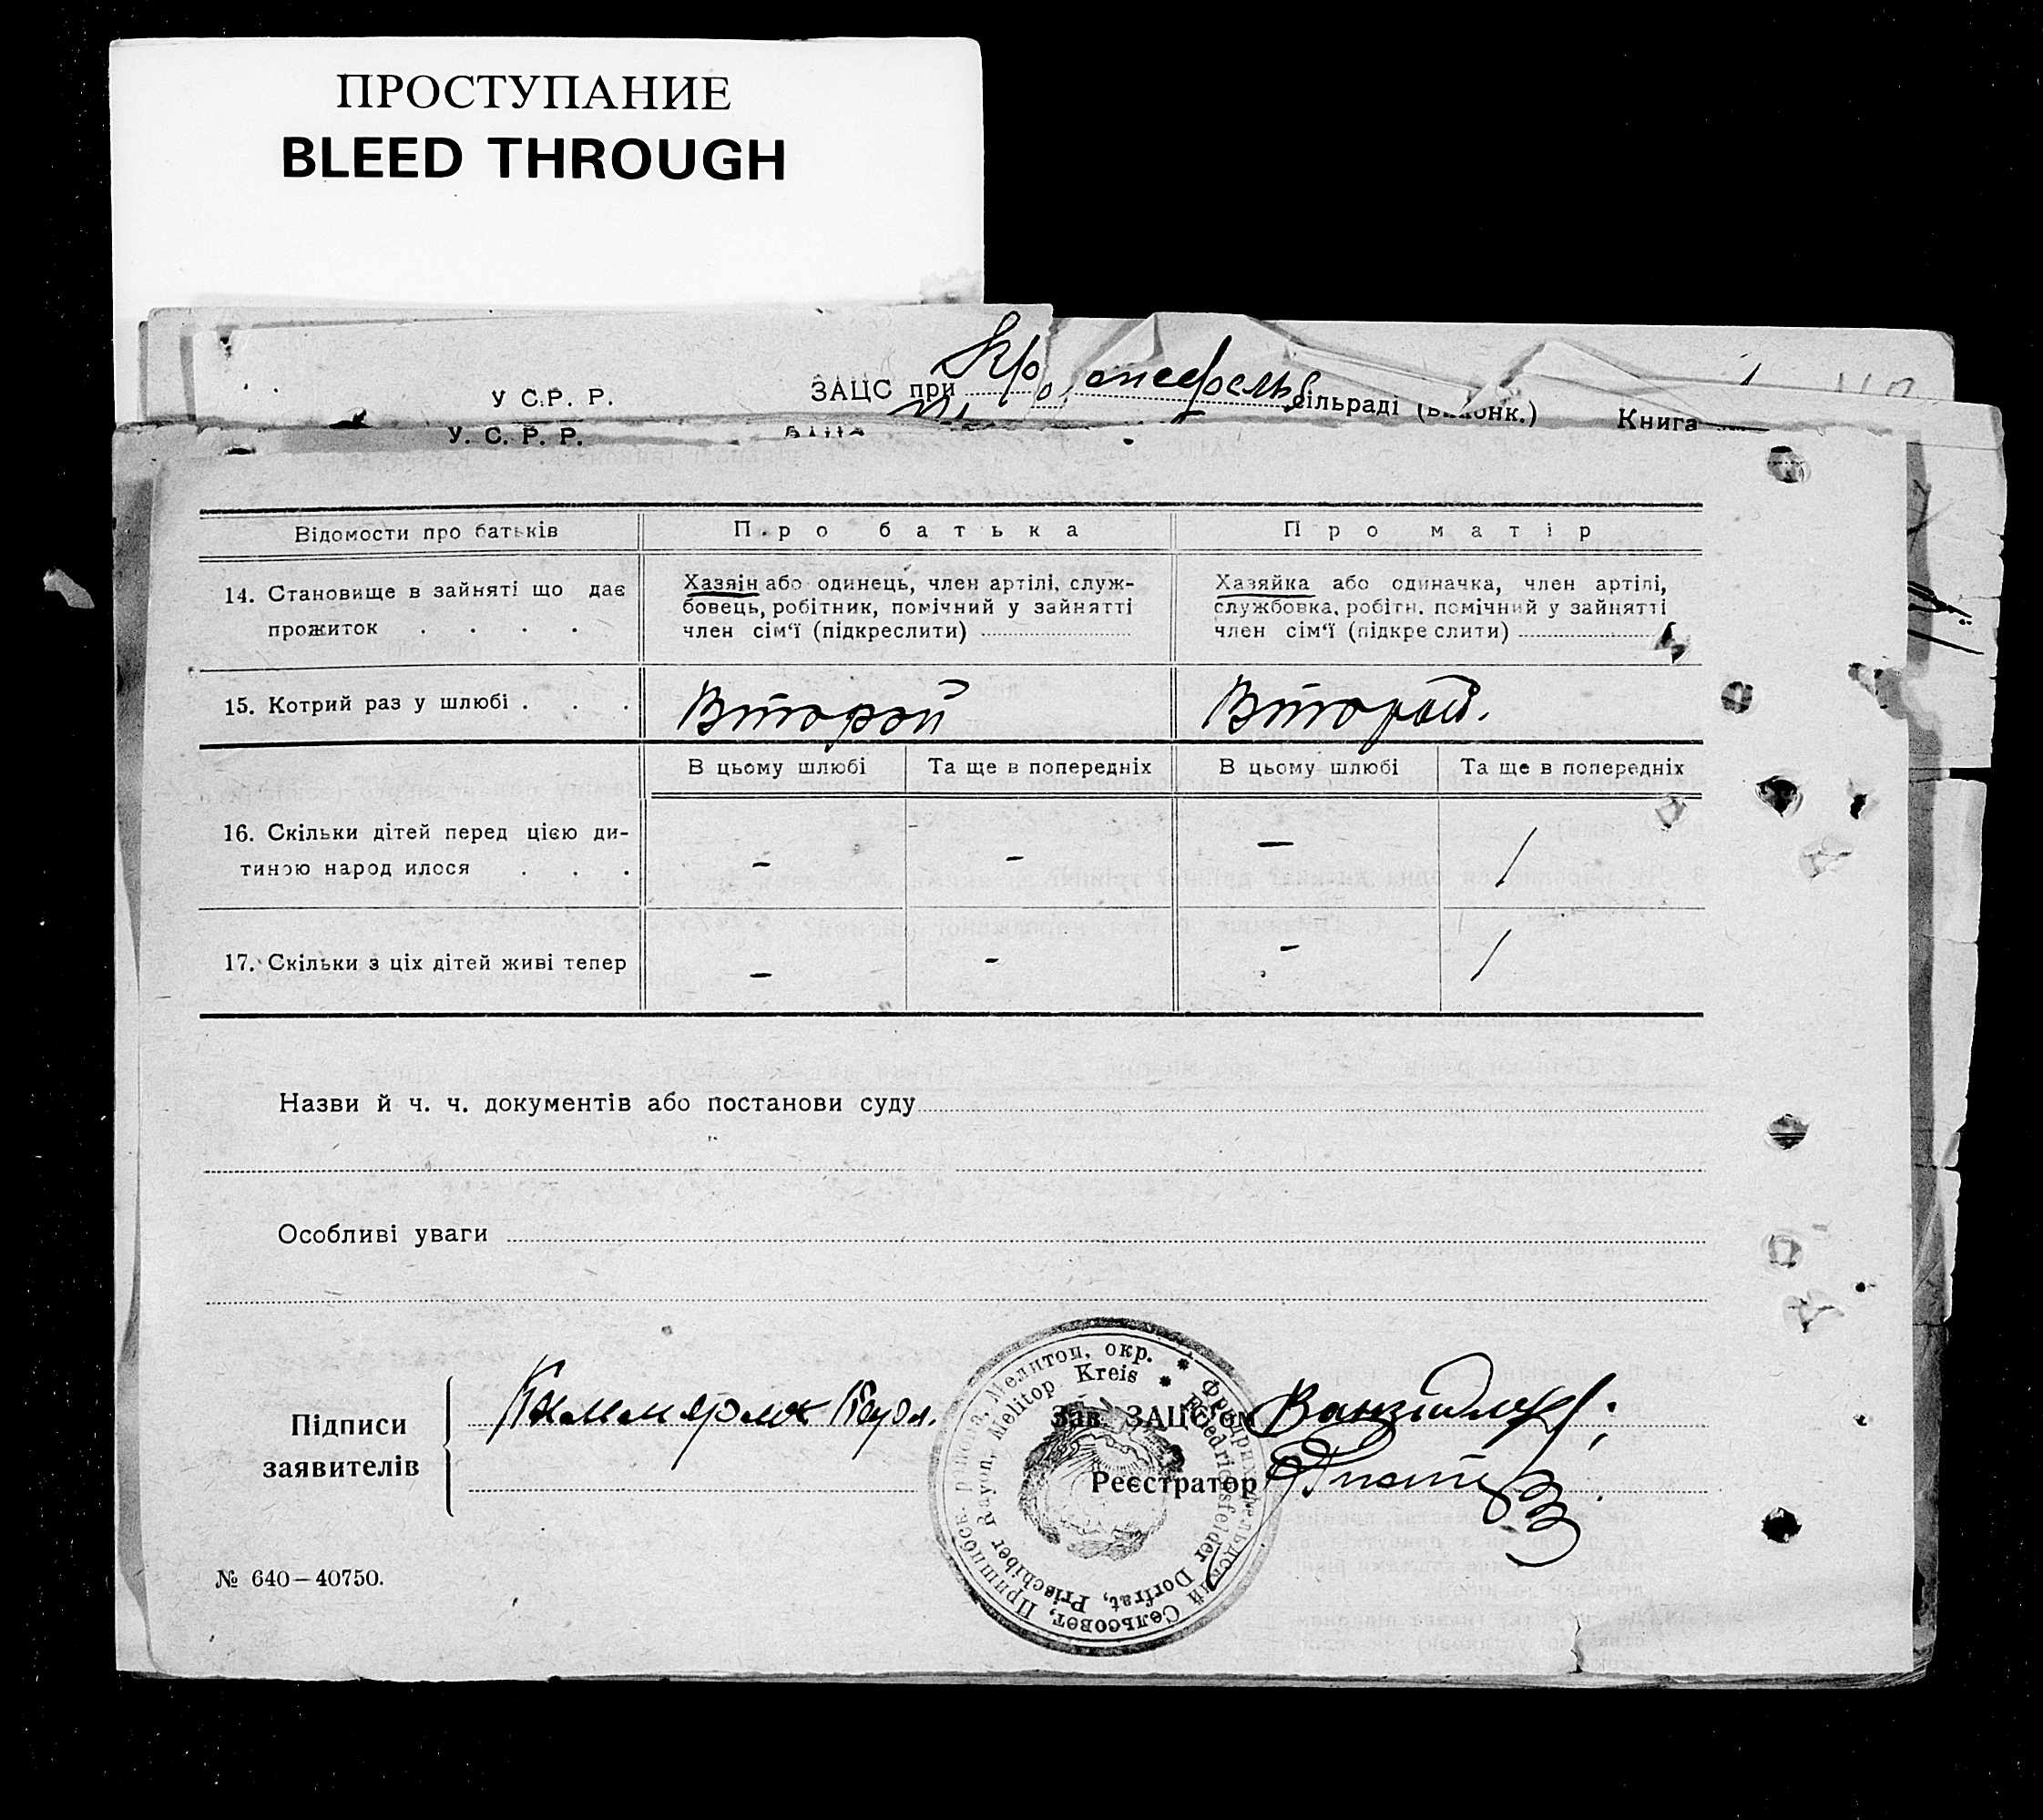 ПРОСТУПАНИЕ
BLEED THROUGH
У С.Р. Р. ЗАЦС при сільраді Книга
У. С. Р. Р.
Відомости про батьків
Про батька
Про матір
14. Становище в зайняті що дає
прожиток . . . .
Хазяїн або одинець, член артілі, служ-
бовець, робітник, помічний у зайнятті
член сім'ї (підкреслити)
Хазяйка або одиначка, член артілі,
службовка, робітн. помічний у зайнятті
член сім'ї (підкре слити)
15. Котрий раз у шлюбі . . .
Второй
Второй.
В цьому шлюбі
Та ще в попередніх
В цьому шлюбі
Та ще в попередніх
16. Скільки дітей перед цією ди-
тиною народ илося . . .
-
-
-
/
17. Скільки з ціх дітей живі тепер
-
-
-
/
Назви й ч. ч. документів або постанови суду
Особливі уваги
Підписи
заявителів
Зав. ЗАЦС'ом
Реєстратор
Фридрихсфельдский Сельсовет, Пришибск. района, Мелитоп. окр. *
Friedrichsfelder Dorfrat, Prischiber Rayon, Melitop Kreis *
№ 640—40750.